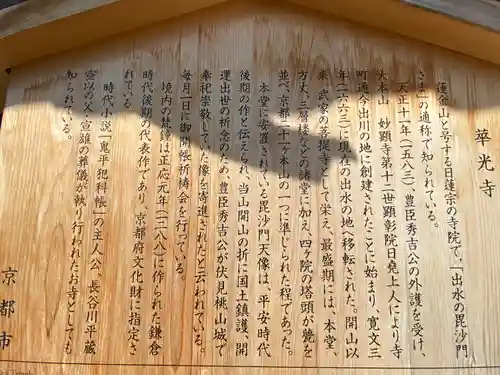 華光寺
蓮金山と号する日蓮宗の寺院で、「出水の毘沙門
さま」の通称で知られている。
天正十一年（一五八三）、豊臣秀吉公の外護を受け、
大本山 妙顕寺第十二世顕彰院日堯上人により寺
町通今出川の地に創建されたことに始まり、寛文三
年（一六六三）に現在の出水の地へ移転された。開山以
来、武家の菩提寺として栄え、最盛期には、本堂、
方丈、三層楼などの諸堂に加え、四ヶ院の塔頭が甍を
並べ、京都二十一ヶ本山の一つに準じられた程であった。
本堂に安置されている毘沙門天像は、平安時代
後期の作と伝えられ、当山開山の折に国土鎮護、開
運出世の祈念のため、豊臣秀吉公が伏見桃山城で
奉祀崇敬していた像を寄進されたと云われている。
毎月一日に御開帳祈祷会を行っている。
境内の梵鐘は正応元年（一二八八）に作られた鎌倉
時代後期の代表作であり、京都府文化財に指定さ
れている。
時代小説「鬼平犯科帳」の主人公、長谷川平蔵
宣以の父・宣雄の葬儀が執り行われたお寺としても
知られている。
京都市